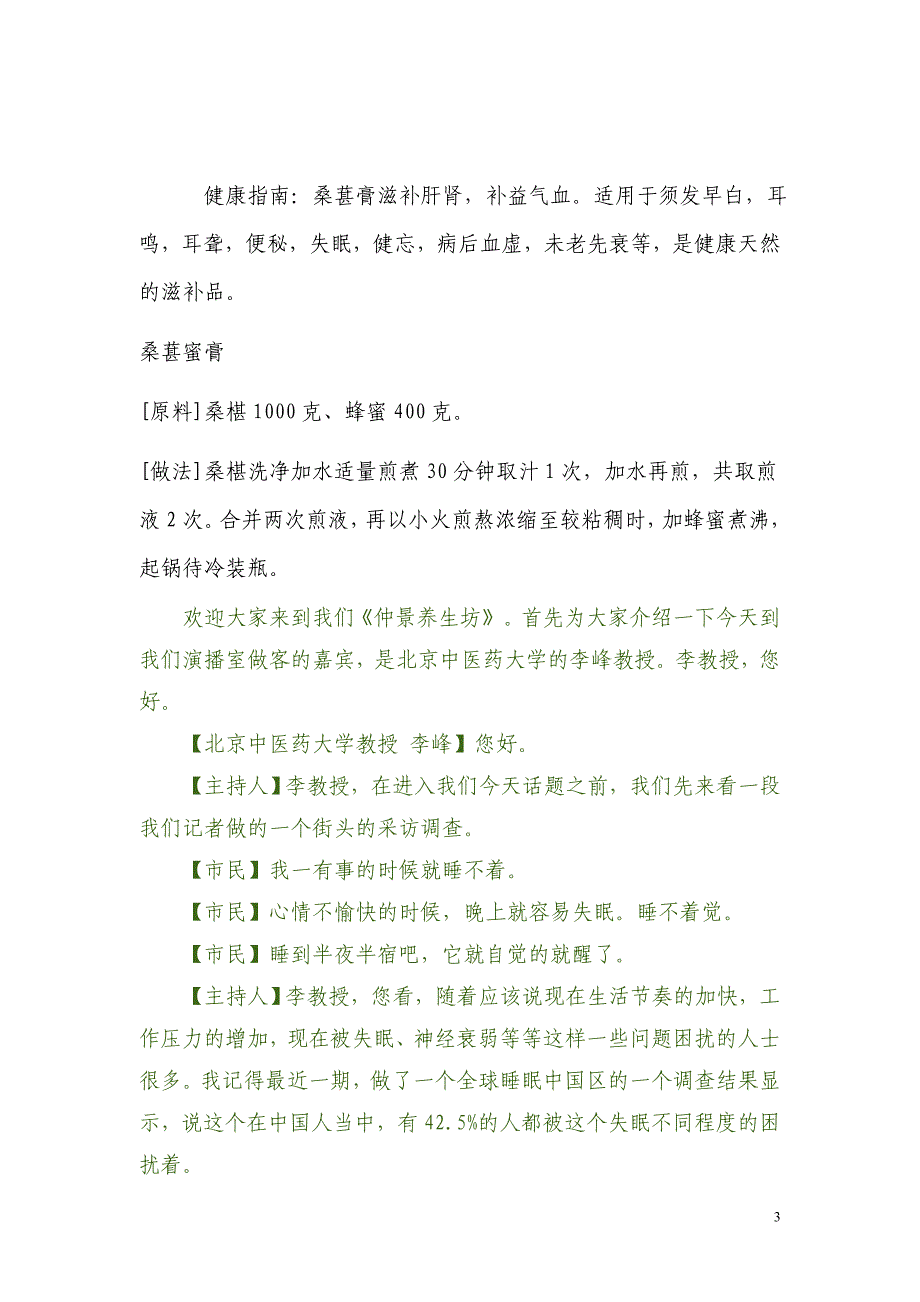 健康指南：桑葚膏滋补肝肾，补益气血。适用于须发早白，耳
鸣，耳聋，便秘，失眠，健忘，病后血虚，未老先衰等，是健康天然
的滋补品。
桑葚蜜膏
[原料]桑椹 1000 克、蜂蜜 400 克。
[做法]桑椹洗净加水适量煎煮 30 分钟取汁 1 次，加水再煎，共取煎
液 2 次。合并两次煎液，再以小火煎熬浓缩至较粘稠时，加蜂蜜煮沸，
起锅待冷装瓶。
欢迎大家来到我们《仲景养生坊》。首先为大家介绍一下今天到
我们演播室做客的嘉宾，是北京中医药大学的李峰教授。李教授，您
好。
【北京中医药大学教授 李峰】您好。
【主持人】李教授，在进入我们今天话题之前，我们先来看一段
我们记者做的一个街头的采访调查。
【市民】我一有事的时候就睡不着。
【市民】心情不愉快的时候，晚上就容易失眠。睡不着觉。
【市民】睡到半夜半宿吧，它就自觉的就醒了。
【主持人】李教授，您看，随着应该说现在生活节奏的加快，工
作压力的增加，现在被失眠、神经衰弱等等这样一些问题困扰的人士
很多。我记得最近一期，做了一个全球睡眠中国区的一个调查结果显
示，说这个在中国人当中，有 42.5%的人都被这个失眠不同程度的困
扰着。
3